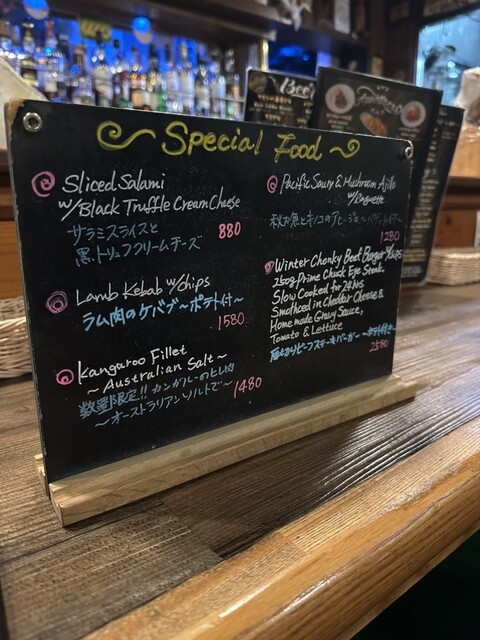 Special Food
Sliced Salami
w/Black Truffle Cream Cheese
サラミスライスと
黒トリュフクリームチーズ
880
Lamb Kebab w/chips
ラム肉のケバブ〜ポテト付〜
1580
Kangaroo Fillet
~Australian Salt~
数量限定!! カンガルーのヒレ肉
〜オーストラリアンソルトで〜
1480
Pacific Saury & Mushroom Ajillo
w/Baguette
1280
Winter Chonky Beef Burger
250g Prime Chuck Eye Steak
Slow Cooked for 24hrs
Smothced in Cheddar Cheese &
Home made Gravy Sauce,
Tomato & Lettuce
ビーフステーキバーガー 〜ポテト付〜
2580
Beer